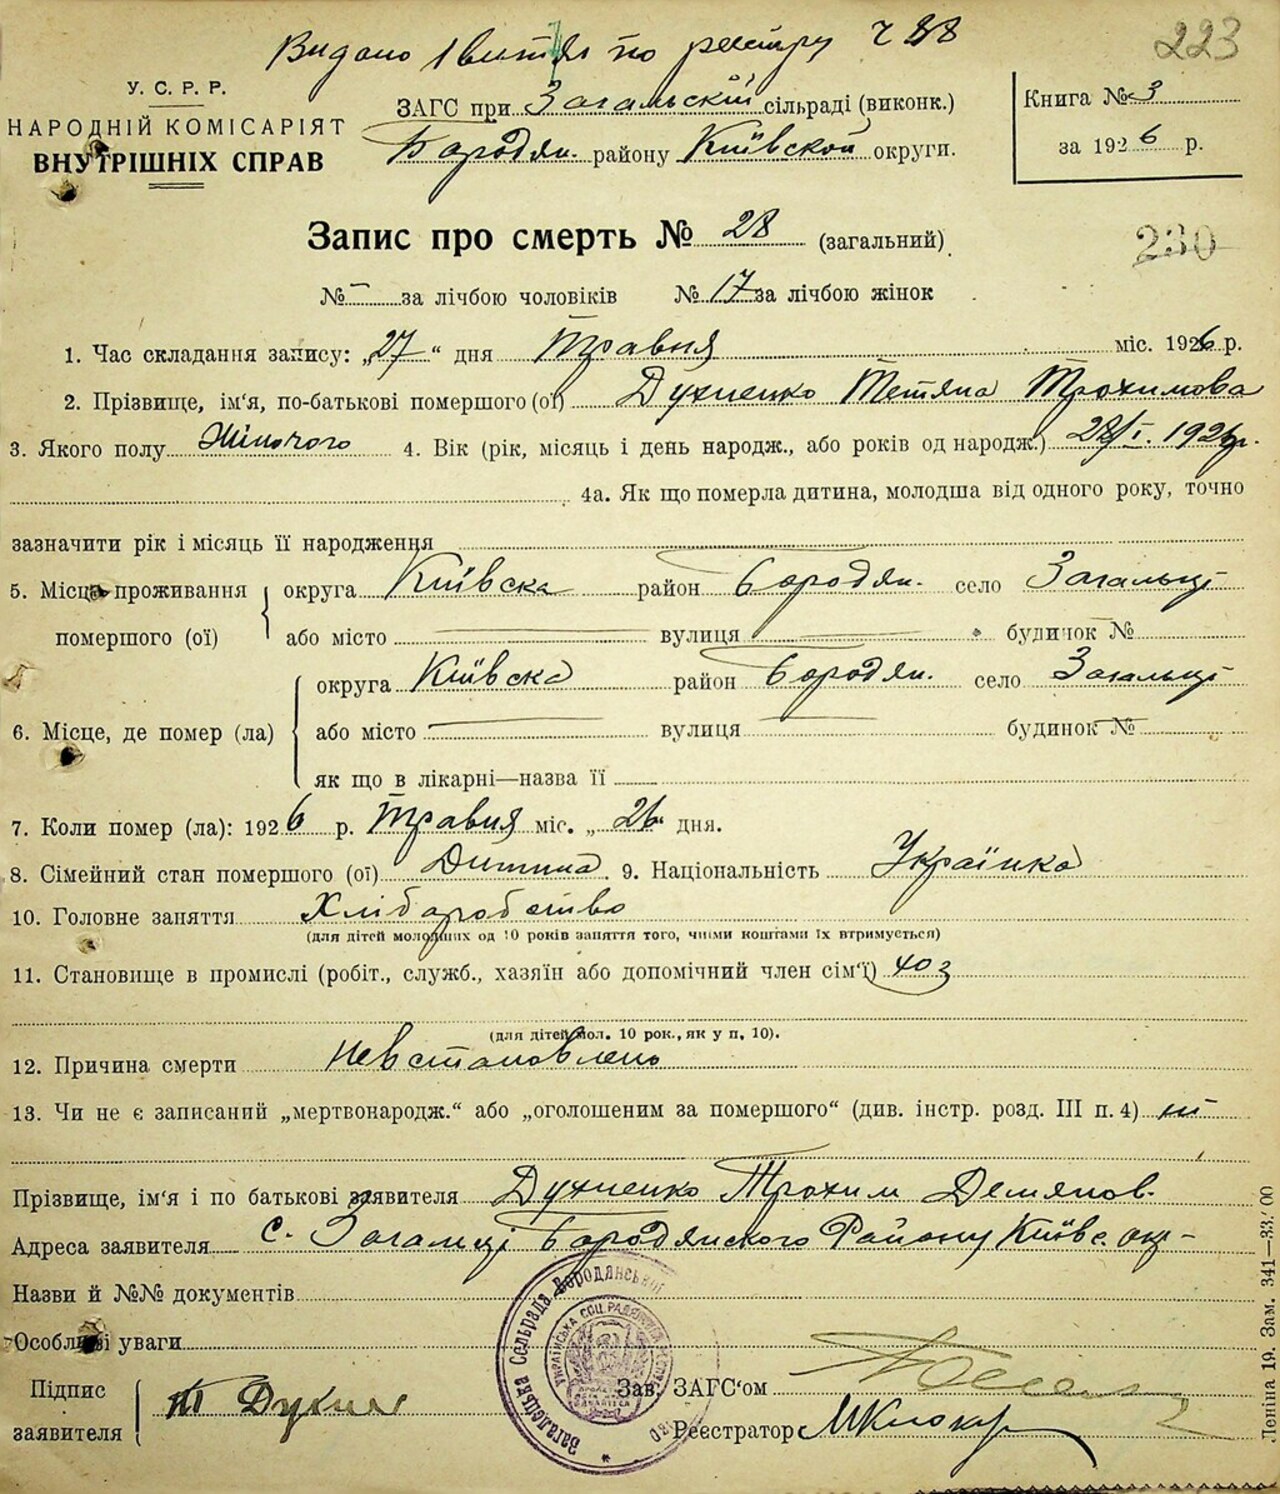 Видано 1 витяг по реєстру Ч 88
223
У. С. Р. Р.
НАРОДНІЙ КОМІСАРІЯТ
ВНУТРІШНІХ СПРАВ
ЗАГС при Загальскій сільраді (виконк.)
Бородян. району Київской округи.
Книга № 3
за 1926 р.
Запис про смерть № 28 (загальний)
230
№ – за лічбою чоловіків № 17 за лічбою жінок
1. Час складання запису: „27“ дня Травня міс. 1926 р.
2. Прізвище, ім‘я, по-батькові помершого (ої) Духненко Тетяна Трохимова
3. Якого полу Жіночого 4. Вік (рік, місяць і день народж., або років од народж.) 28/I. 1926 р.
4а. Як що померла дитина, молодша від одного року, точно
зазначити рік і місяць її народження
5. Місце проживання помершого (ої) округа Київска район Бородян. село Загальці
або місто вулиця будинок №
6. Місце, де помер (ла) округа Київска район Бородян. село Загальці
або місто вулиця будинок №
як що в лікарні—назва її
7. Коли помер (ла): 1926 р. Травня міс. „26 дня.
8. Сімейний стан помершого (ої) Дитина. 9. Національність Українка
10. Головне заняття Хліборобство
(для дітей молодших од 10 років заняття того, чиїми коштами їх втримується)
11. Становище в промислі (робіт., служб., хазяїн або допомічний член сім‘ї)
(для дітей мол. 10 рок., як у п, 10).
12. Причина смерти Невстановлено
13. Чи не є записаний „мертвонародж.“ або „оголошеним за помершого“ (див. інстр. розд. III п. 4) ні
Прізвище, ім‘я і по батькові заявителя Духненко Трохим Демянов.
Адреса заявителя с. Загальці Бородянского Району Київс. окр-
Назви й №№ документів
Особливі уваги
Підпис заявителя Т Духне
Зав. ЗАГС‘ом
Реєстратор МКлюкар
Загалецька Сельрада Бородянської
УКРАЇНСЬКА СОЦ. РАДЯНСЬКА
Лепіна 19. Зам. 341—33.